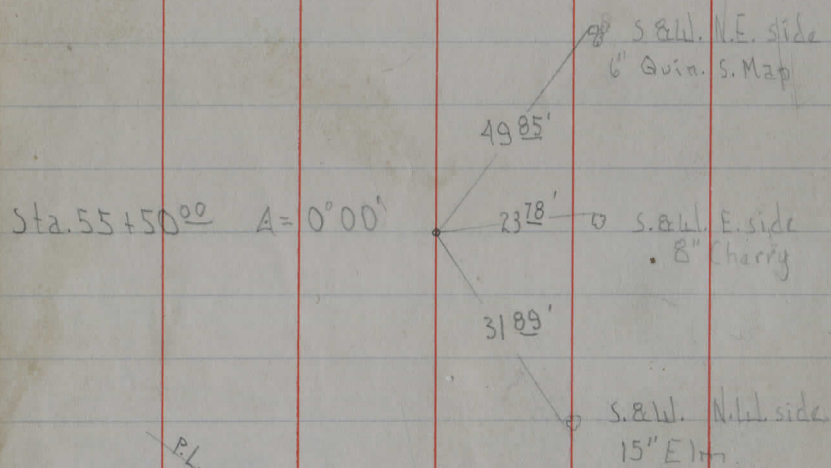 S. &W. N.E. side
6" Quin. S. Map
49 85'
Sta. 55+50 00 Δ= 0°00'
23 78'
S. &W. E. side
8" Cherry
31 89'
S. &W. N.W. side
15" Elm
P.L